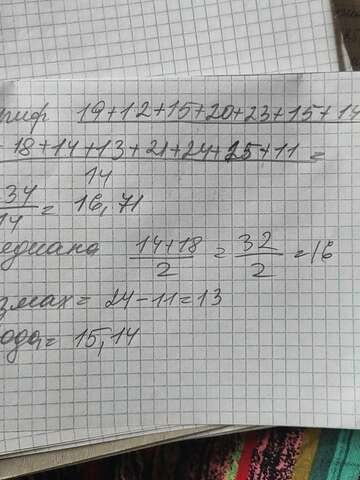 риф 19+12+15+20+23+15+14
18+14+13+21+24+15+11 =
14
34/14 = 16,71
едиана (14+18)/2 = 32/2 = 16
змах = 24-11=13
ода = 15,14